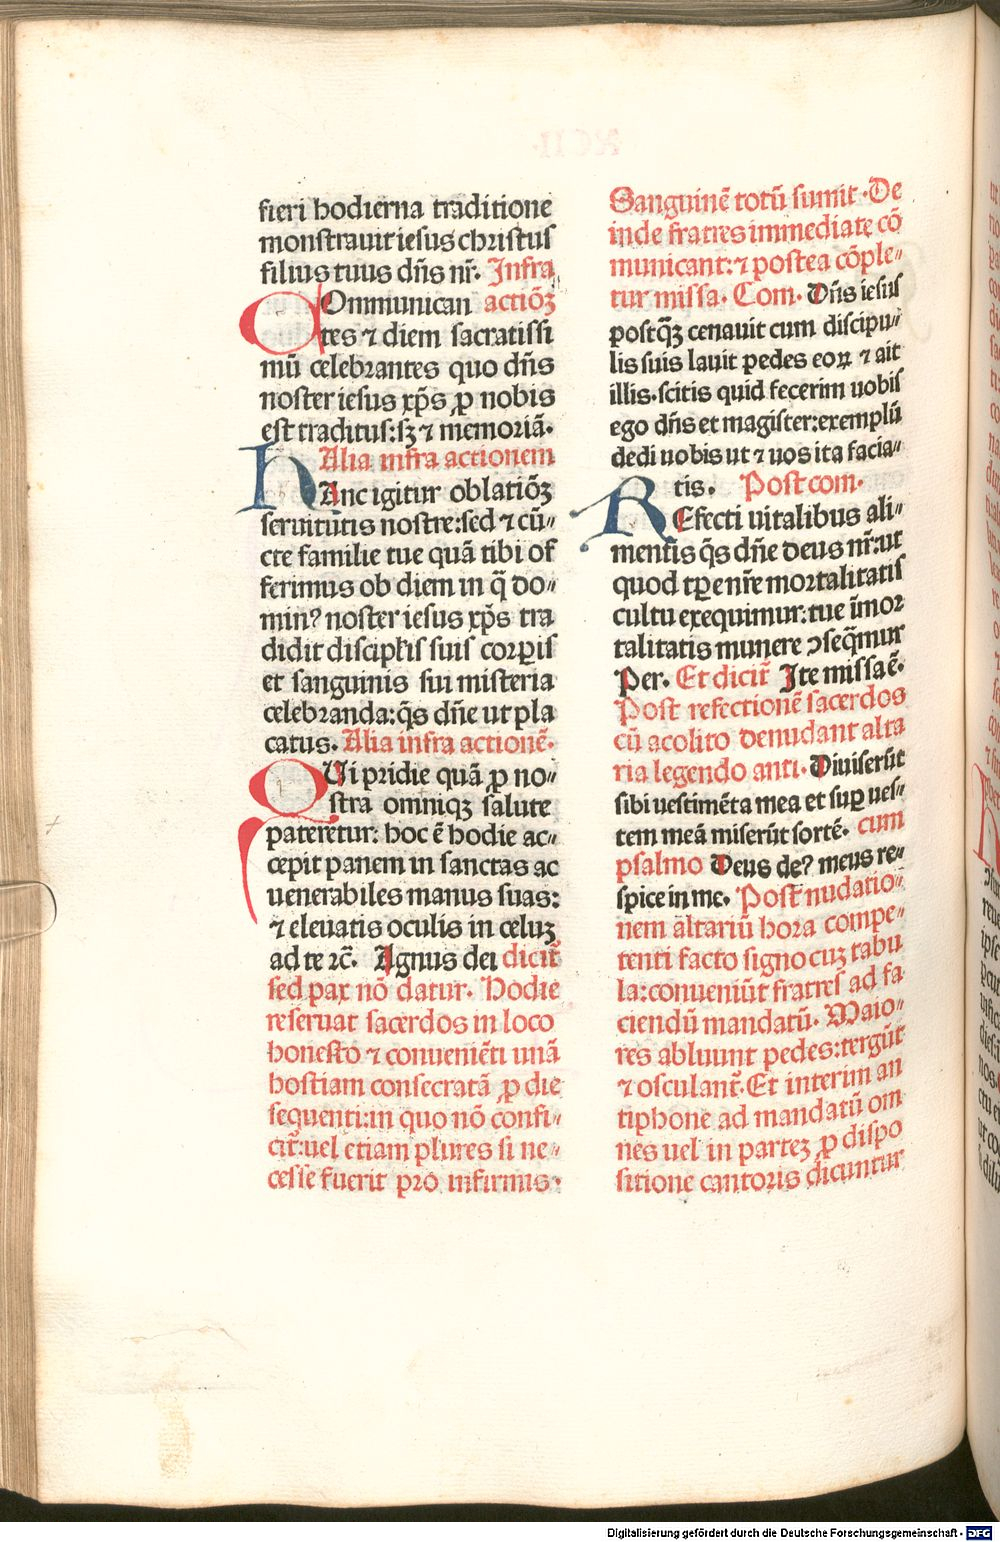 fieri hodierna traditione
monstrauit iesus christus
filius tuus dn̄s nr̄. Infra
COmmunican actiōꝫ
tes ⁊ diem sacratissi
mū celebrantes quo dn̄s
noster iesus xp̄s ꝓ nobis
est traditus: sꝫ ⁊ memoriā.
Alia infra actionem
HAnc igitur oblatiōꝫ
seruitutis nostre: sed ⁊ cū〃
cte familie tue quā tibi of
ferimus ob diem in q̄ do〃
min? noster iesus xp̄s tra
didit discipl̄is suis corꝑis
et sanguinis sui misteria
celebranda: q̄s dn̄e ut pla
catus. Alia infra actionē.
QUi pridie quā ꝓ no〃
stra omniqꝫ salute
pateretur: hoc ē hodie ac〃
cepit panem in sanctas ac
uenerabiles manus suas:
⁊ eleuatis oculis in celuꝫ
ad te ⁊c̄. Agnus dei dicit̄
sed pax nō datur. Hodie
reseruat sacerdos in loco
honesto ⁊ conueniēti unā
hostiam consecratā ꝓ die
sequenti: in quo nō confi〃
cit̄: uel etiam plures si ne〃
cesse fuerit pro infirmis.
Sanguinē totū sumit. De
inde fratres immediate cō
municant: ⁊ postea cōple〃
tur missa. Com. Dn̄s iesus
postq̄ꝫ cenauit cum discipu〃
lis suis lauit pedes eoꝝ ⁊ ait
illis. scitis quid fecerim uobis
ego dn̄s et magister: exemplū
dedi uobis ut ⁊ uos ita facia〃
tis. Post com.
REfecti uitalibus ali〃
mentis q̄s dn̄e deus nr̄: ut
quod tꝑe nr̄e mortalitatis
cultu exequimur: tue īmor
talitatis munere ꝯseq̄mur
Per. Et dicit̄ Ite missa ē.
Post refectionē sacerdos
cū acolito denudant alta
ria legendo anti. Diuiserūt
sibi uestimēta mea et suꝑ ues〃
tem meā miserūt sortē. cum
psalmo Deus de? meus re〃
spice in me. Post nudatio〃
nem altariū hora compe〃
tenti facto signo cuꝫ tabu
la: conueniūt fratres ad fa
ciendū mandatū. Maio〃
res abluunt pedes: tergūt
⁊ osculant̄. Et interim an
tiphone ad mandatū om
nes uel in parteꝫ ꝓ dispo
sitione cantoris dicuntur
Digitalisierung gefördert durch die Deutsche Forschungsgemeinschaft - DFG